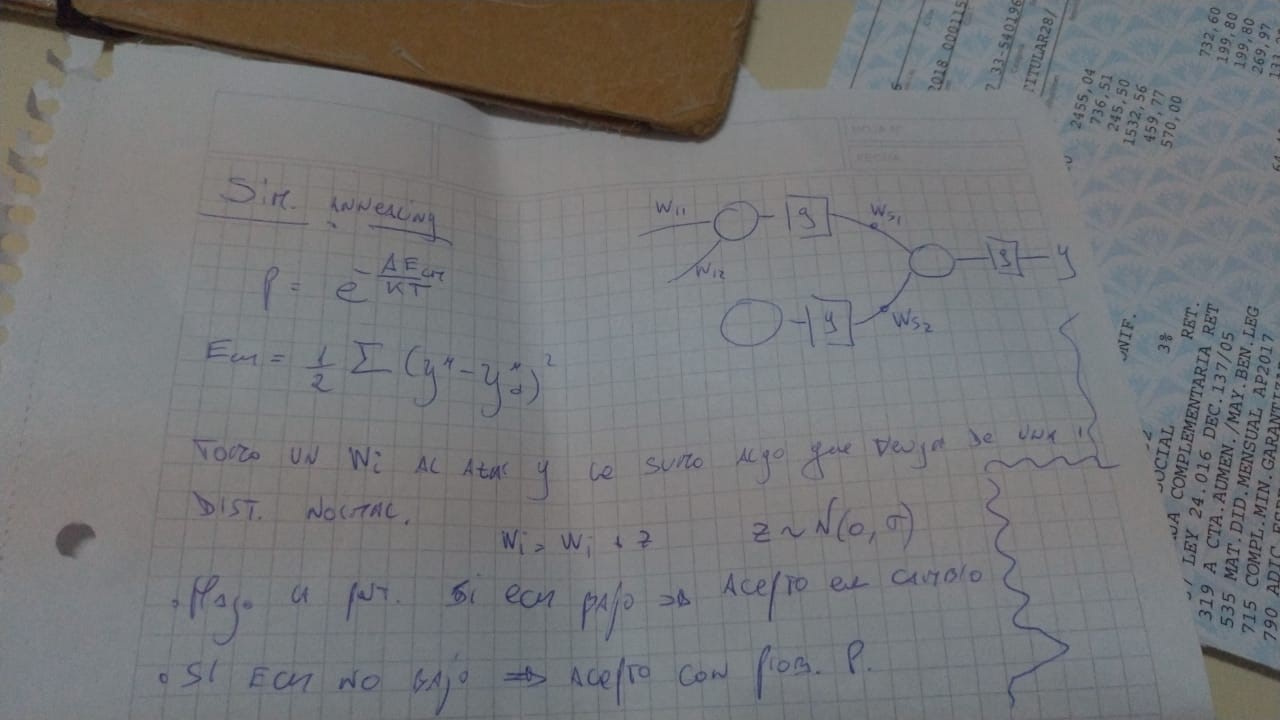 Sim. annealing
P = e^-ΔEcm/KT
Ecm = 1/2 Σ (y^μ - y_d^μ)^2
W11
W12
g
Ws1
g
y
g
Ws2
Tomo un Wi al azar y le sumo algo que venga de una
DIST. NORMAL.
Wi = Wi + z
z ~ N(0, σ)
Si ECM bajo => Acepto el cambio
Si ECM no bajó => Acepto con prob. P.
2018 0001115
33-540196
TITULAR28/
2455,04
736,51
245,50
1532,56
459,77
570,00
732,60
199,80
199,80
269,97
UNIF.
SOCIAL 3%
COMPLEMENTARIA RET.
LEY 24.016 DEC.137/05
319 A CTA.AUMEN./MAY.BEN.LEG
535 MAT.DID.MENSUAL AP2017
715 COMPL.MIN.GARANTI
790